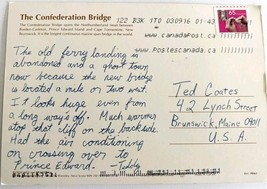 The Confederation Bridge
The Confederation Bridge spans the Northumberland Strait between
Borden-Carleton, Prince Edward Island and Cape Tormentine, New
Brunswick. It is the longest continuous marine span bridge in the world.
122 B3K 1T0 030916 01:43
www.CanadaPost.ca
www.Postescanada.ca
65
The old ferry landing is
abandoned and a ghost town
now because the new bridge
is located a mile or two west.
It looks huge even from
a long ways off. Much warmer
stop that cliff on the backside.
Had the air conditioning
on crossing over to
Prince Edward. - Teddy
Ted Coates
42 Lynch Street
Brunswick, Maine 04011
U.S.A.